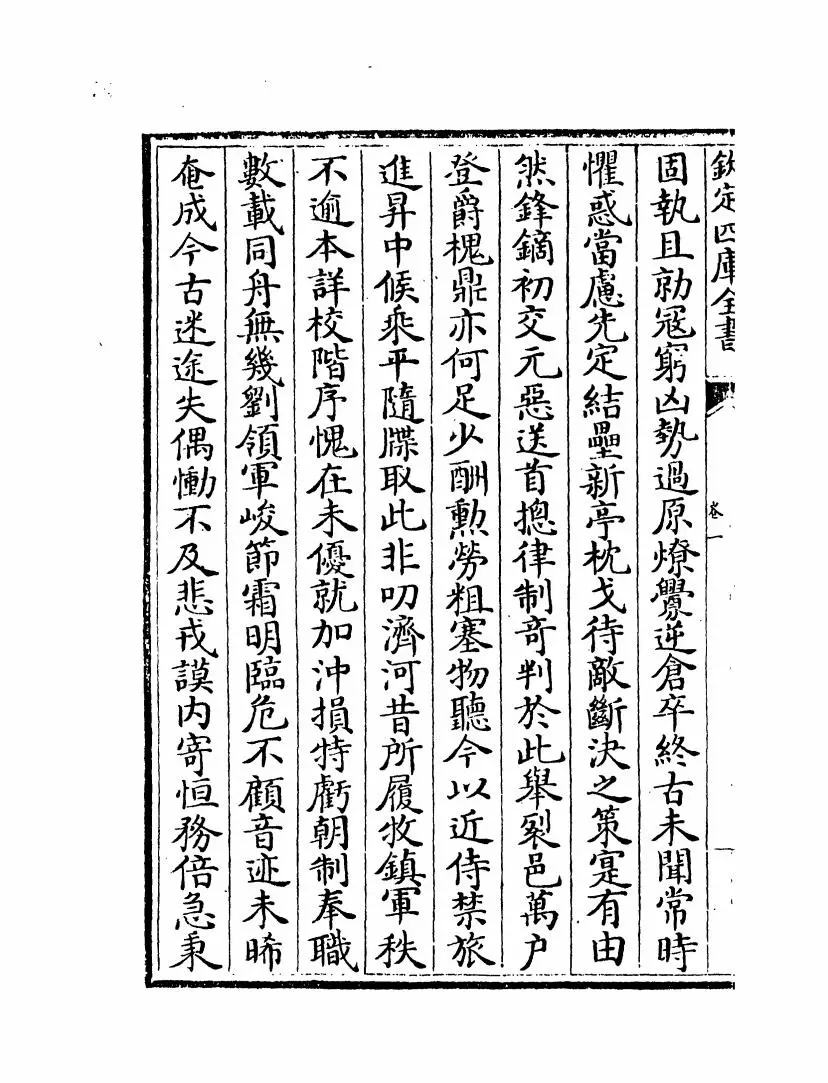 欽定四庫全書
卷一
固執且勍寇窮凶勢過原燎釁逆倉卒終古未聞常時
懼惑當慮先定結壘新亭枕戈待敵斷決之策寔有由
然鋒鏑初交元惡送首摠律制奇判於此舉裂邑萬户
登爵槐鼎亦何足少酬勲勞粗塞物聽今以近侍禁旅
進昇中候乘平隨牒取此非叨濟河昔所履牧鎮軍秩
不逾本詳校階序愧在未優就加沖損特虧朝制奉職
數載同舟無幾劉領軍峻節霜明臨危不顧音迹未晞
奄成今古迷途失偶慟不及悲戎謨内寄恒務倍急秉